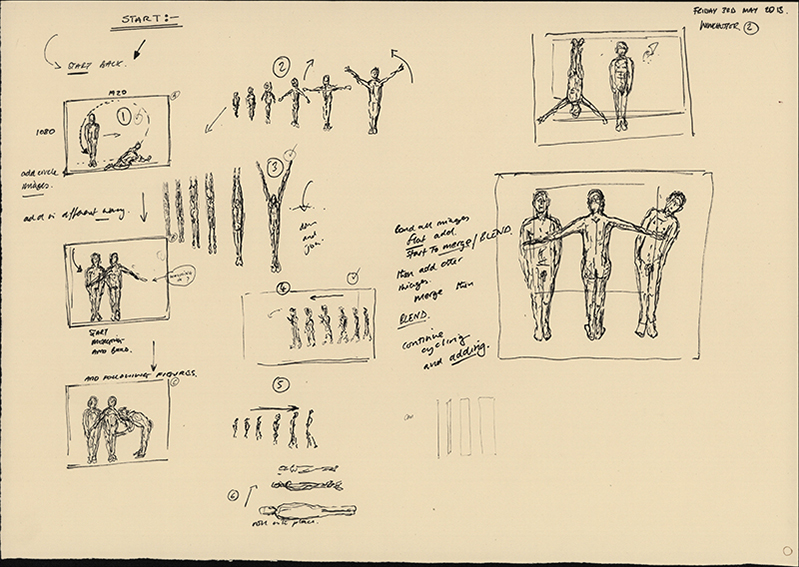 START:-
FRIDAY 3RD MAY 2013.
2
START BACK.
1920
1080
1
add circle
images.
add in different
START
MOVEMENT
AND BUILD.
AND FOLLOWING FIGURES.
2
3
down
and
join.
4
5
6
Blend all images
first add.
START To merge/BLEND.
then add other
images
merge then
BLEND.
continue
cycling
and adding.